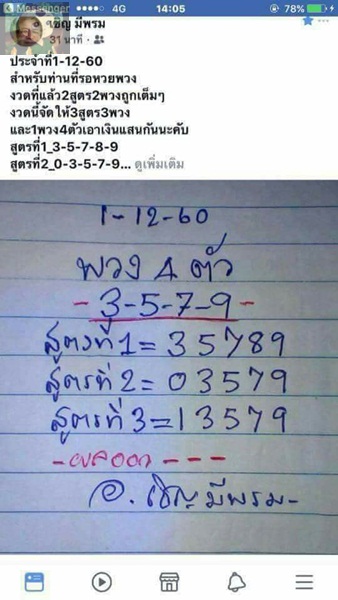 Messenger 4G 14:05 78%
เชิญ มีพรม
31 นาที
ประจำที่1-12-60
สำหรับท่านที่รอหวยพวง
งวดที่แล้ว2สูตร2พวงถูกเต็มๆ
งวดนี้จัดให้3สูตร3พวง
และ1พวง4ตัวเอาเงินแสนกันนะคับ
สูตรที่1_3-5-7-8-9
สูตรที่2_0-3-5-7-9... ดูเพิ่มเติม
1-12-60
พวง 4 ตัว
-3-5-7-9-
สูตรที่1=35789
สูตรที่2=03579
สูตรที่3=13579
-ผลออก---
อ.เชิญมีพรม-